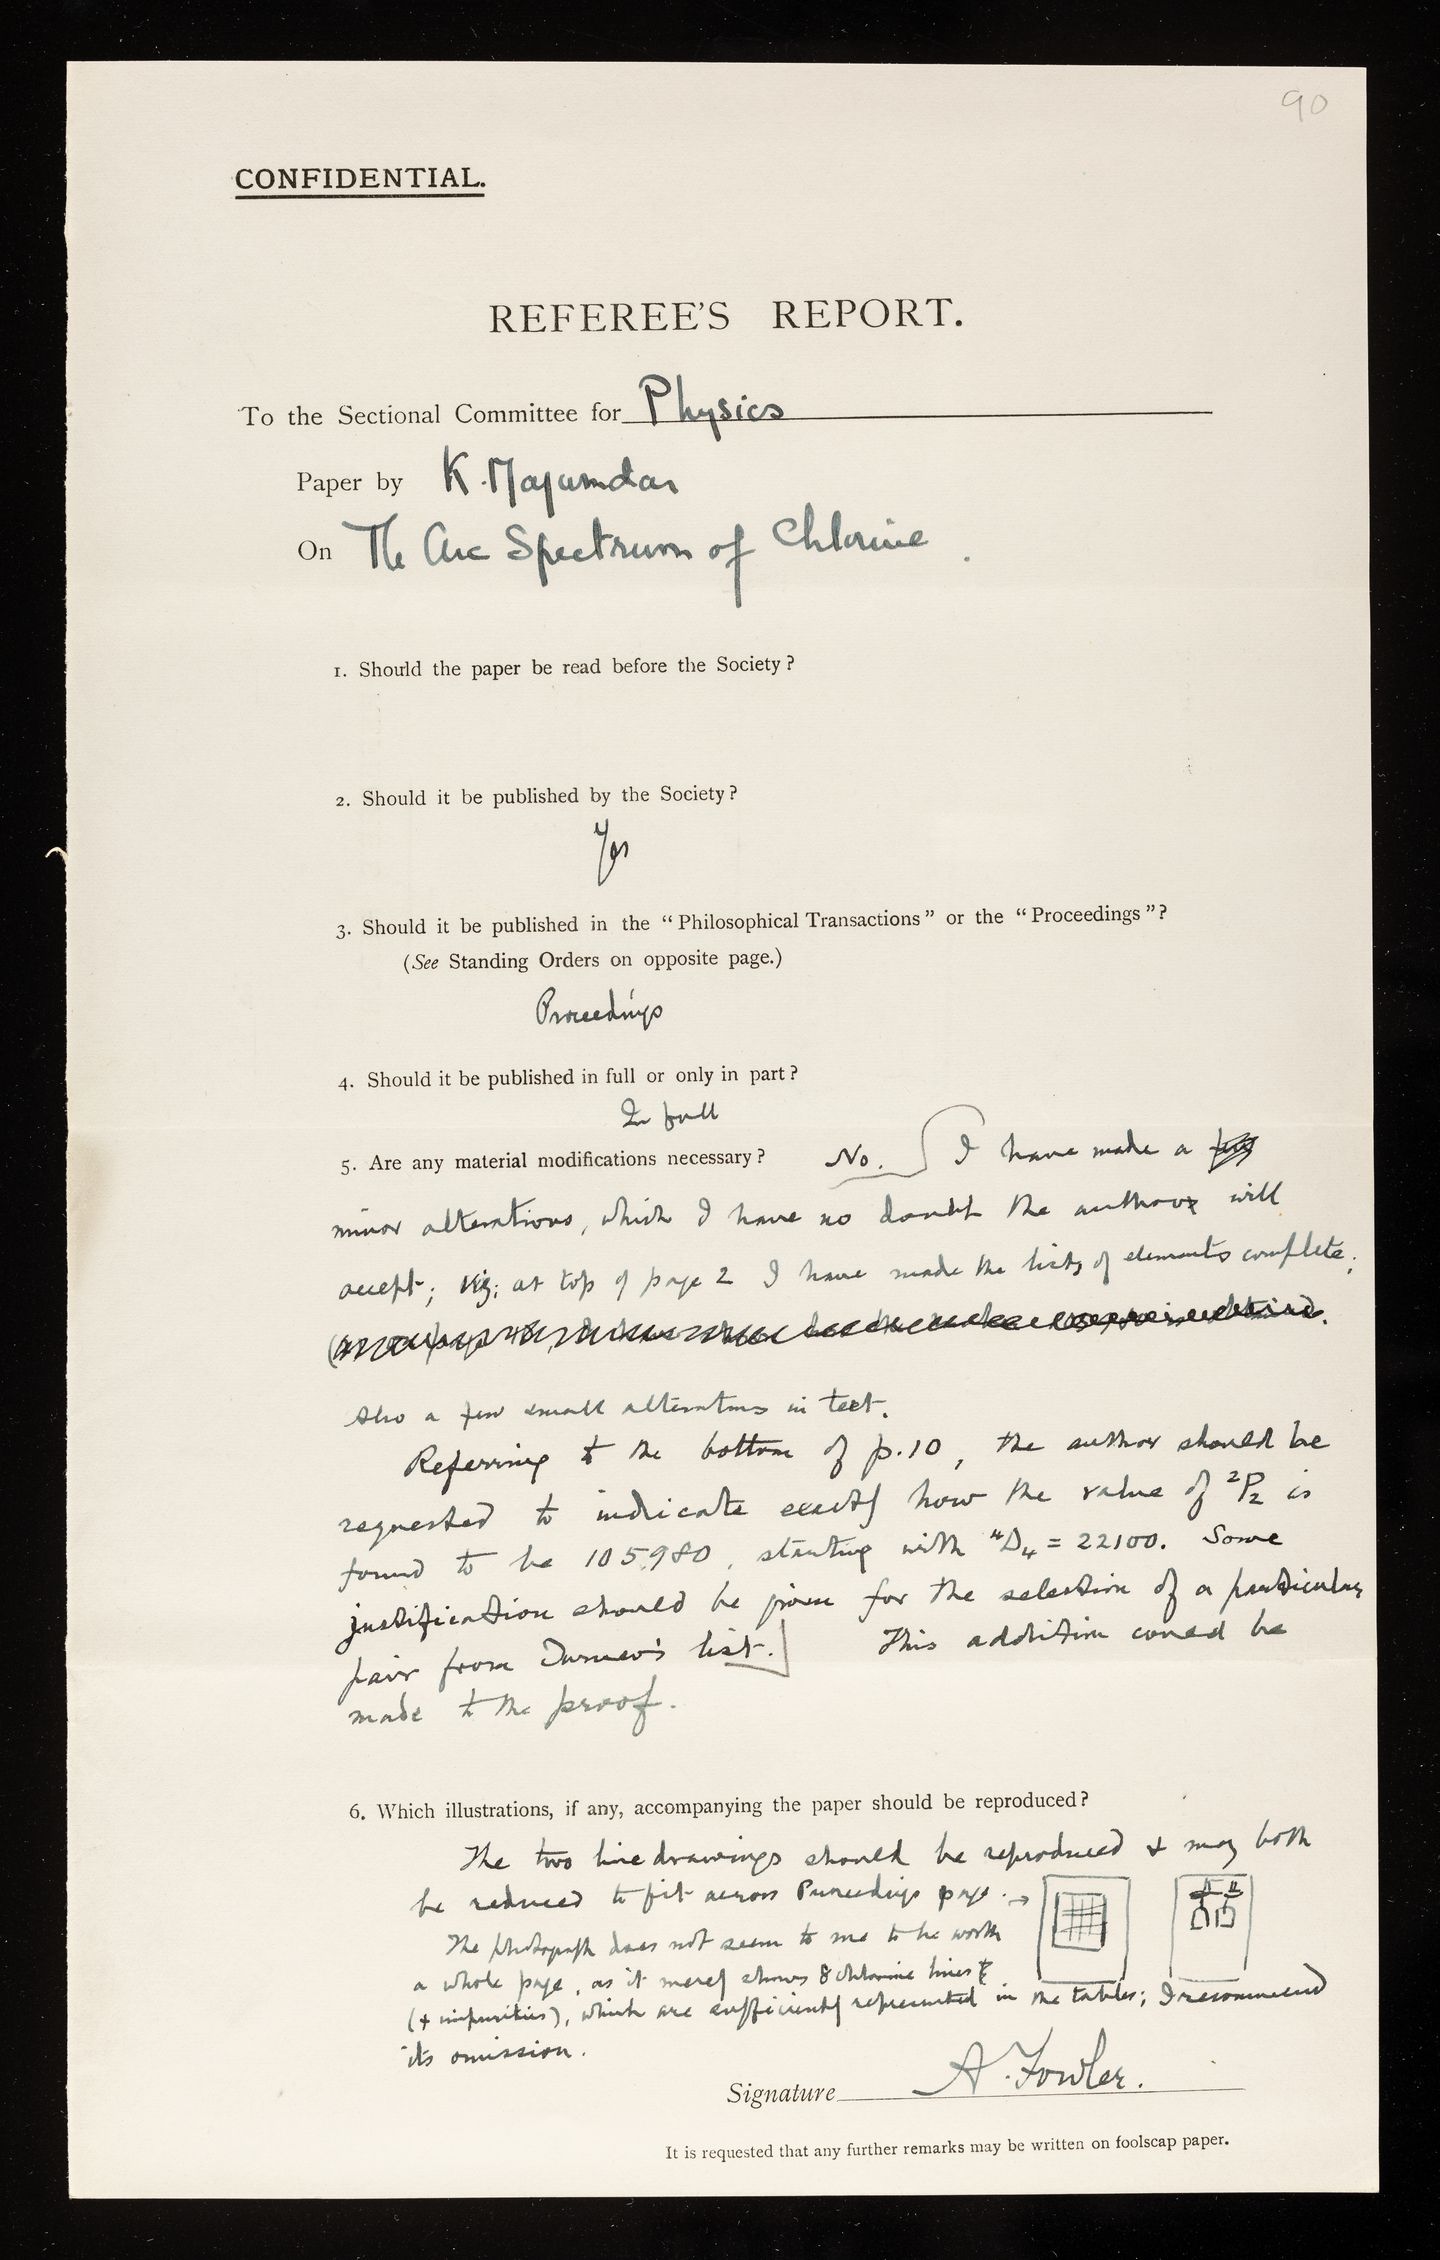 90
CONFIDENTIAL.
REFEREE'S REPORT.
To the Sectional Committee for Physics
Paper by K. Majumdar
On The Arc Spectrum of Chlorine.
1. Should the paper be read before the Society?
2. Should it be published by the Society?
Yes
3. Should it be published in the "Philosophical Transactions" or the "Proceedings"?
(See Standing Orders on opposite page.)
Proceedings
4. Should it be published in full or only in part?
In full
5. Are any material modifications necessary? No. [I have made a
minor alterations, which I have no doubt the author will
accept; viz: at top of page 2 I have made the lists of elements complete;
Also a few small alterations in text.
Referring to the bottom of p.10, the author should be
requested to indicate exactly how the value of ²P₂ is
found to be 105980, starting with ⁴D₄ = 22100. Some
justification should be given for the selection of a particular
pair from Turner's list.] This addition could be
made to the proof.
6. Which illustrations, if any, accompanying the paper should be reproduced?
The two line drawings should be reproduced & may both
be reduced to fit across Proceedings page. →
The photograph does not seem to me to be worth
a whole page, as it merely shows 8 chlorine lines
(+ impurities), which are sufficiently represented in the tables; I recommend
its omission.
Signature A. Fowler.
It is requested that any further remarks may be written on foolscap paper.